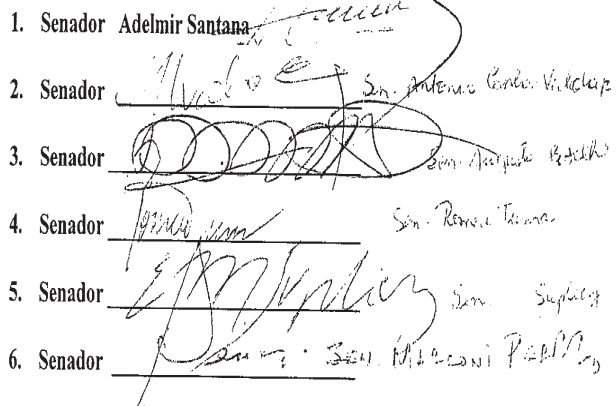 1. Senador Adelmir Santana
2. Senador Sen. Antonio Carlos Valadares
3. Senador Sen. Augusto Botelho
4. Senador Sen. Romeu Tuma
5. Senador Sen. Suplicy
6. Senador Sen. MARCONI PERILLO